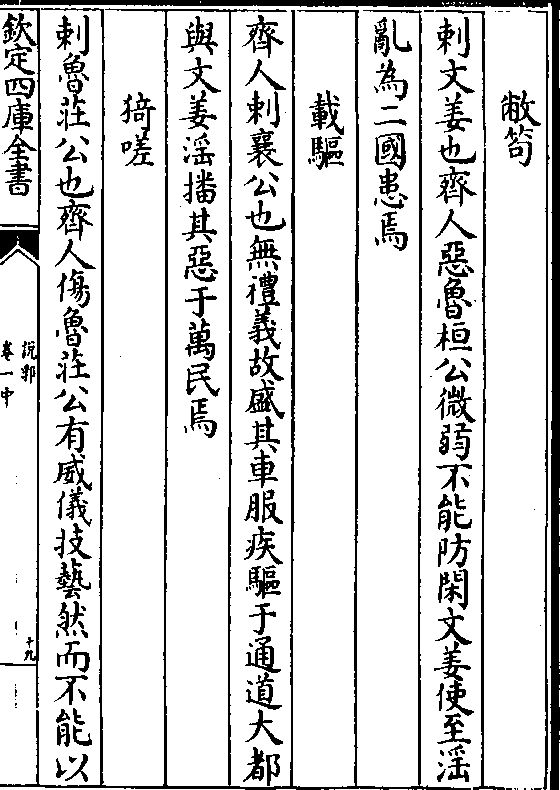 敝笱
刺文姜也齊人惡魯桓公微弱不能防閑文姜使至淫
亂為二國患焉
載驅
齊人刺襄公也無禮義故盛其車服疾驅于通道大都
與文姜淫播其惡于萬民焉
猗嗟
刺魯莊公也齊人傷魯莊公有威儀技藝然而不能以
欽定四庫全書
說郛
卷一中
十九